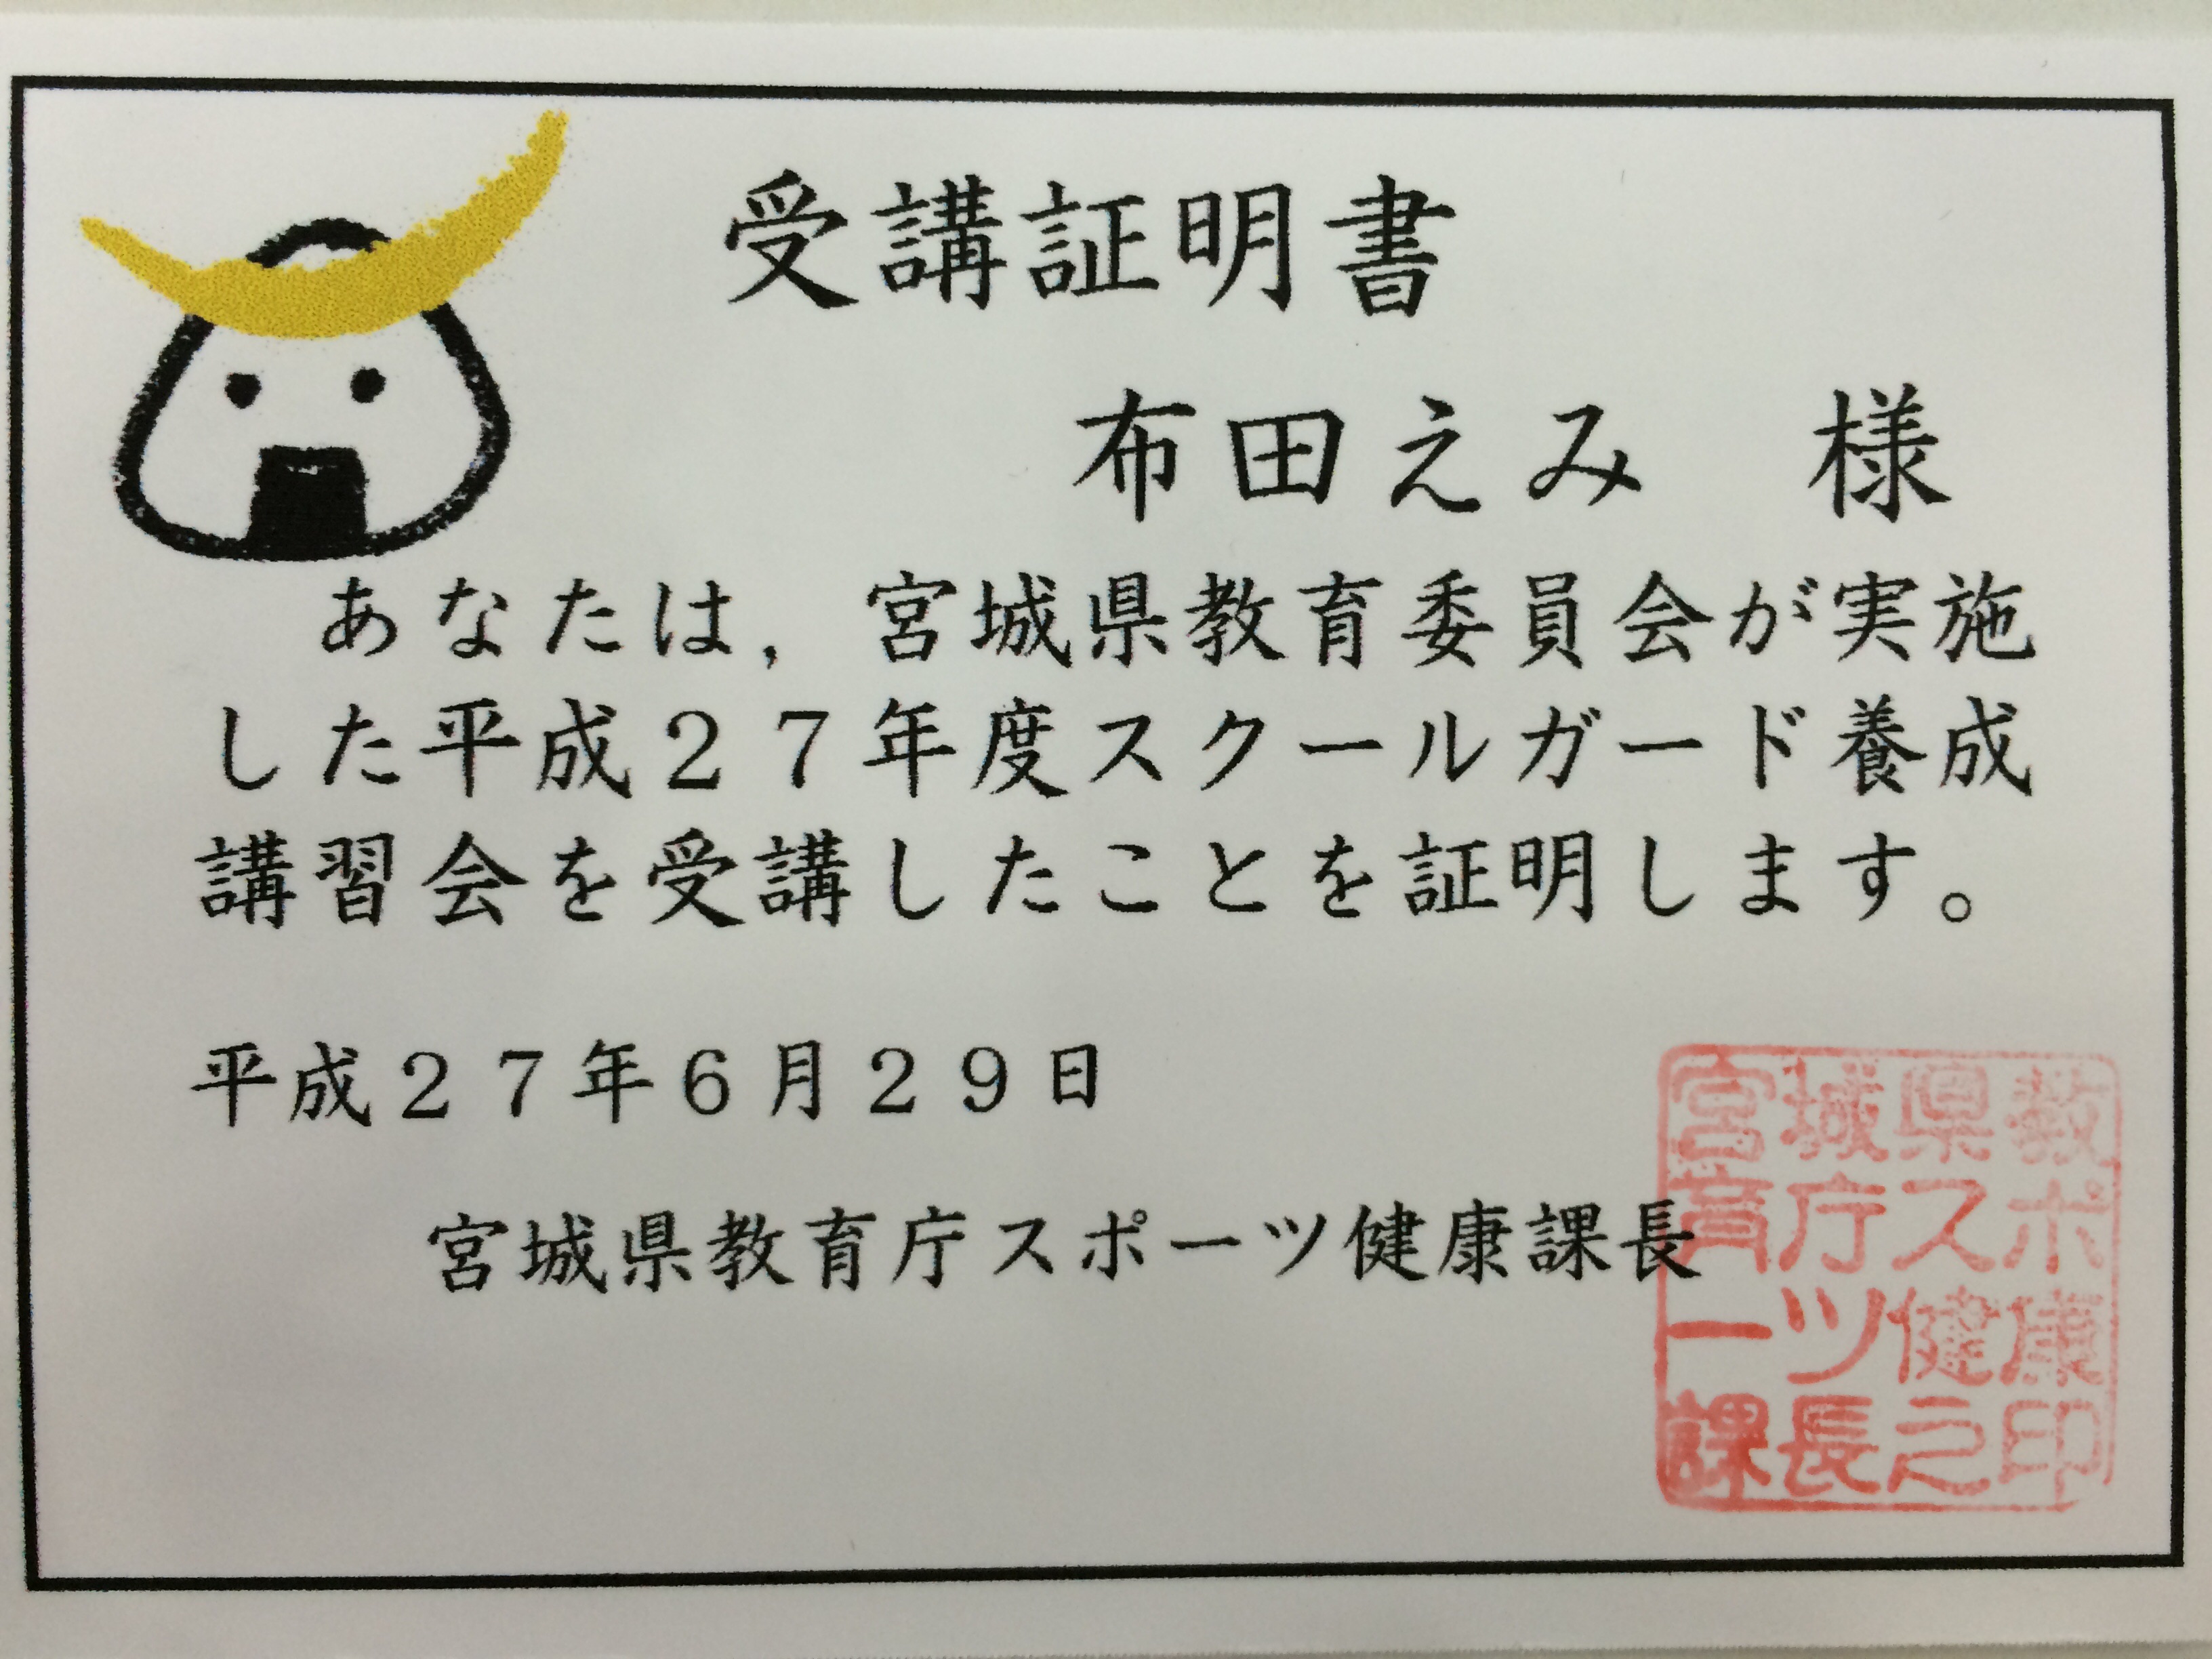 受講証明書
布田えみ　様
あなたは，宮城県教育委員会が実施
した平成２７年度スクールガード養成
講習会を受講したことを証明します。
平成２７年６月２９日
宮城県教育庁スポーツ健康課長
宮城県教
育庁スポ
ーツ健康
課長之印